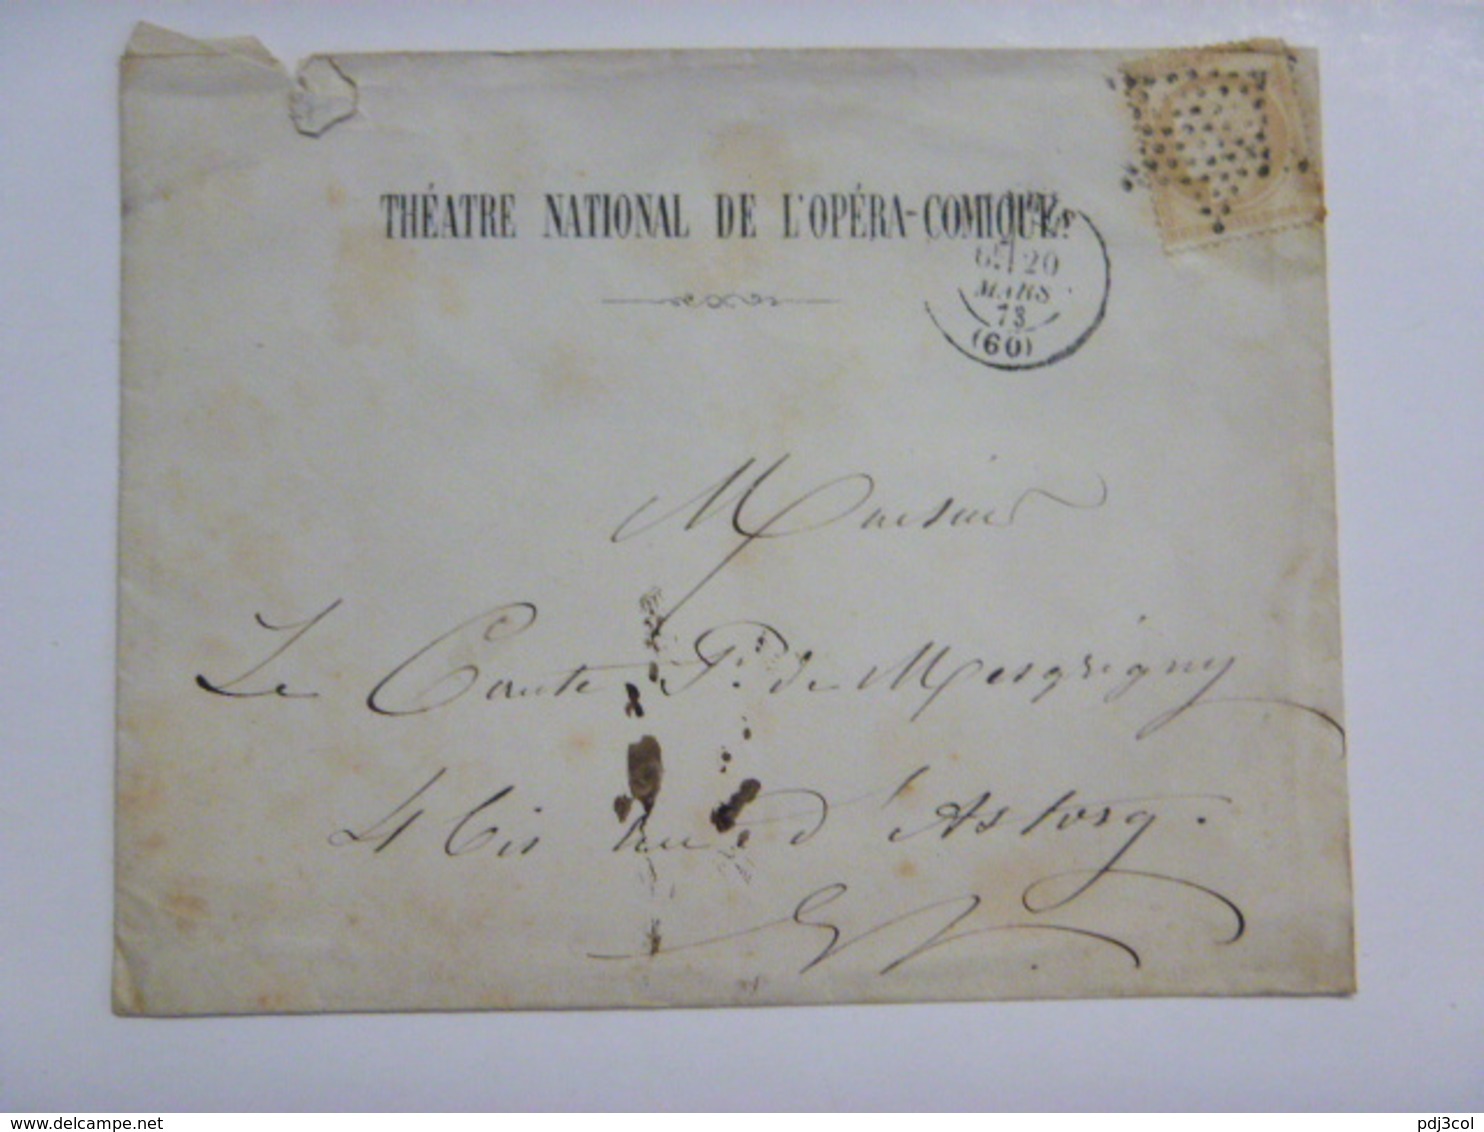 THÉATRE NATIONAL DE L'OPÉRA-COMIQUE.
20
MARS
73
(60)
Monsieur
Le Comte F. de Mesgrigny
4 bis rue d'Astorg.
delcampe.net
pdj3col